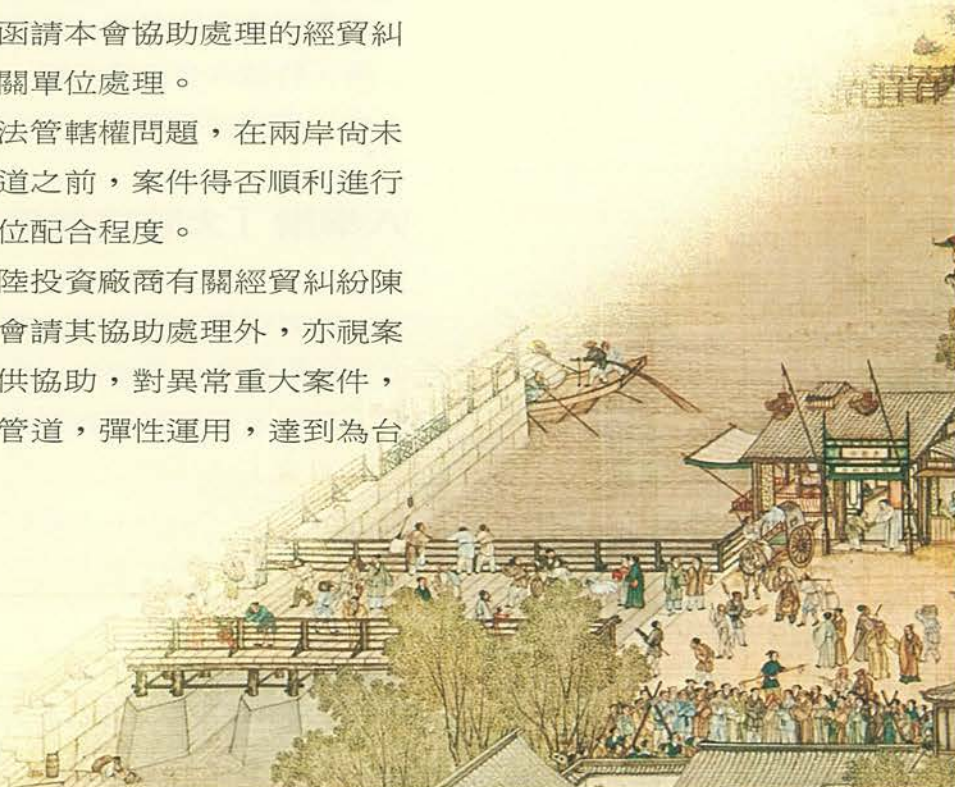 函請本會協助處理的經貿糾
關單位處理。
法管轄權問題，在兩岸尚未
道之前，案件得否順利進行
位配合程度。
陸投資廠商有關經貿糾紛陳
會請其協助處理外，亦視案
供協助，對異常重大案件，
管道，彈性運用，達到為台